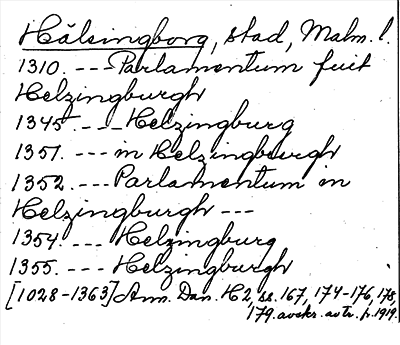 Hälsingborg, stad, Malm. l.
1310. --- Parlamentum fuit
Helzingburgh
1345. --- Helzingburg
1351. --- in Helzingburgh
1352. --- Parlamentum in
Helzingburgh ---
1354. --- Helzingburg
1355. --- Helzingburgh
[1028-1363] Ann. Dan. H2, ss. 167, 174-176, 178,
179. avskr. avtr. fr. 1919.